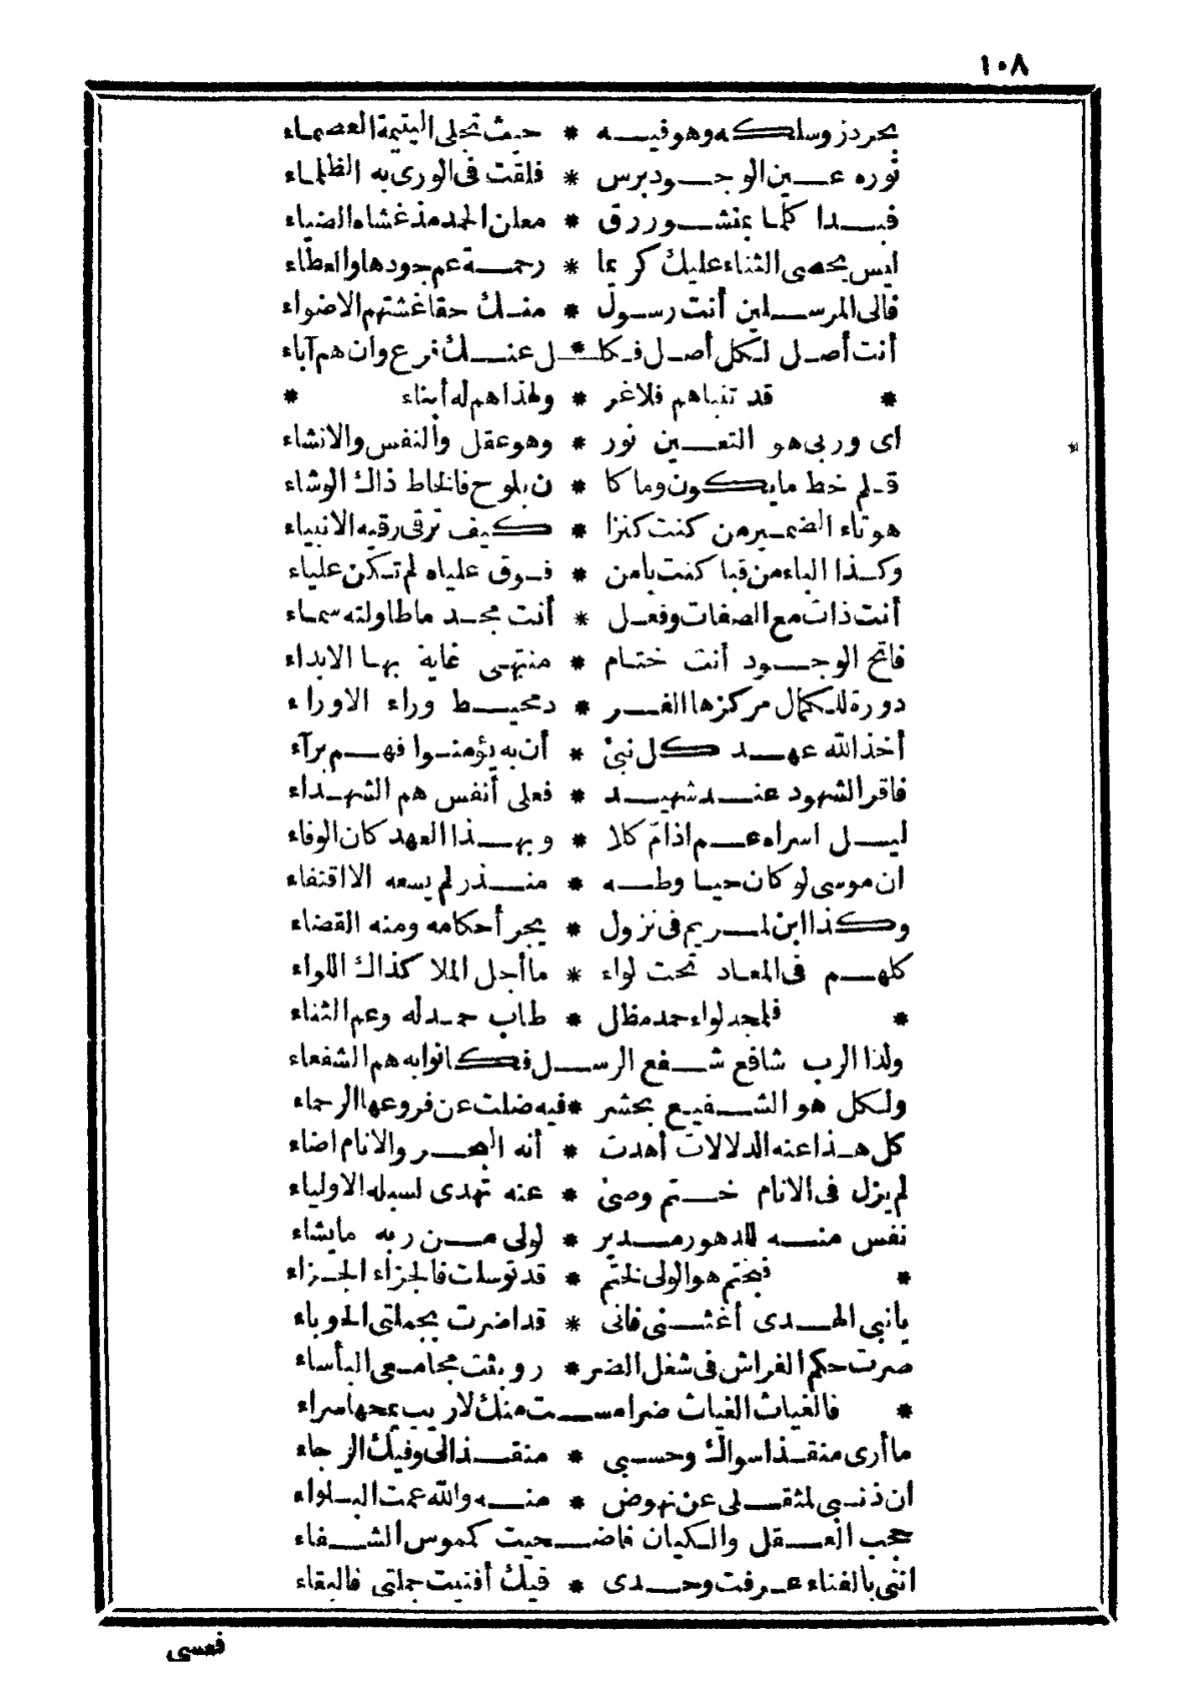 ١٠٨
بحر در وسلكه وهو فيه * حيث تجلى اليتيمة العصماء
نوره عين الوجود برس * فلقت فى الورى به الظلماء
فبدا كلما بمنشور رق * معلن الحمد مذ غشاه الضياء
ليس يحصى الثناء عليك كرعا * رحمة عم جودها والعطاء
فالى المرسلين أنت رسول * منك حقا غشتهم الاضواء
أنت أصل لكل أصل فكا * ل عنك فرع وان هم آباء
* قد تفباهم فلاغر * ولهذا هم له أبناء *
اى وربى هو التعين نور * وهو عقل والنفس والانشاء
قلم خط ما يكون وما كا * ن بلوح فالخاط ذاك الوشاء
هو تاء الضمير من كنت كنزا * كيف ترقى رقيه الانبياء
وكذا الباء من قبا كنت يامن * فوق علياه لم تكن علياء
أنت ذات مع الصفات وفعل * أنت مجد ماطاولته سماء
فاتح الوجود أنت ختام * منتهى غاية بها الابداء
دورة للكمال مركزها الفر * دمحيط وراء الاوراء
أخذ الله عهد كل نبى * أن به يؤمنوا فهم برآء
فاقر الشهود عند شهيد * فعلى أنفس هم الشهداء
ليل اسراه عم اذ امّ كلا * وبهذا العهد كان الوفاء
ان موسى لو كان حيا وطه * منذر لم يسعه الا اقتفاء
وكذا ابن لمريم فى نزول * يجر أحكامه ومنه القضاء
كلهم فى المعاد تحت لواء * ما أجل الملا كذاك اللواء
* فلمجد لواء حمد مظل * طاب حمد له وعم الثناء
ولذا الرب شافع شفع الرسل فكانوا به هم الشفعاء
ولكل هو الشفيع بحشر * فيه ضلت عن فروعها الرحماء
كل هذا عنه الدلالات أهدت * أنه البحر والانام اضاء
لم يزل فى الانام ختم وصى * عنه تهدى لسبله الاولياء
نفس منه للدهور مدير * لولى من ربه مايشاء
* فبختم هو الولى لختم * قد توسلت فالجزاء الجزاء
يا نبى الهدى أغثنى فانى * قد اضرت بجملتى الحوباء
صرت حكم الفراش فى شغل الضر * روبثت مجامعى البأساء
* فالغياث الغياث ضرا مست منك لاريب عجها سراء
ما أرى منقذا سواك وحسبى * منقذ الىّ وفيك الرجاء
ان ذنبى لمثقلى عن نهوض * منه والله عمت البلواء
حجب العقل والكيان فاضحيت كموس الشفاء
اننى بالفناء عرفت وحدى * فيك أفنيت جملتى فالبقاء
فعسى